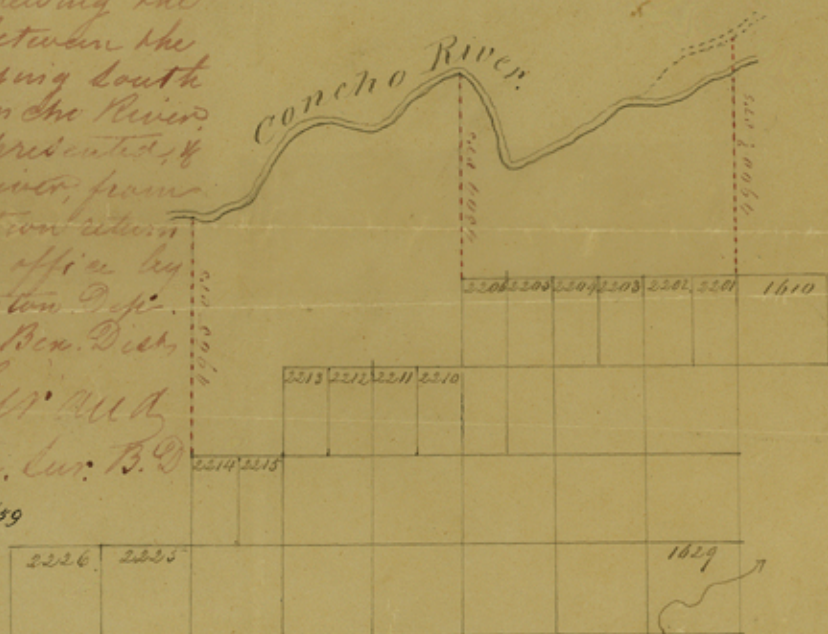 the
etween the
ping South
cho River
presented, if
from
return
office by
ton Dep.
Bex. Dist.
Sur. B. D
59
Concho River.
2206 2205 2204 2203 2202 2201 1610
2213 2212 2211 2210
2214 2215
2226 2225 1629